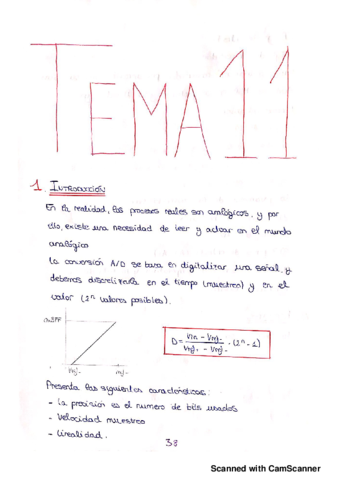 TEMA 11
1. INTRODUCCIÓN
En la realidad, los procesos reales son analógicos, y por
ello, existe una necesidad de leer y actuar en el mundo
analógico
La conversión A/D se basa en digitalizar una señal, y
debemos discretizarla en el tiempo (muestreo) y en el
valor (2ⁿ valores posibles).
0x3FF
D = (Vin - Vref-) / (Vref+ - Vref-) · (2ⁿ - 1)
Vref- Vref+
Presenta las siguientes características:
- La precisión es el numero de bits usados
- Velocidad muestreo
- Linealidad.
38
Scanned with CamScanner